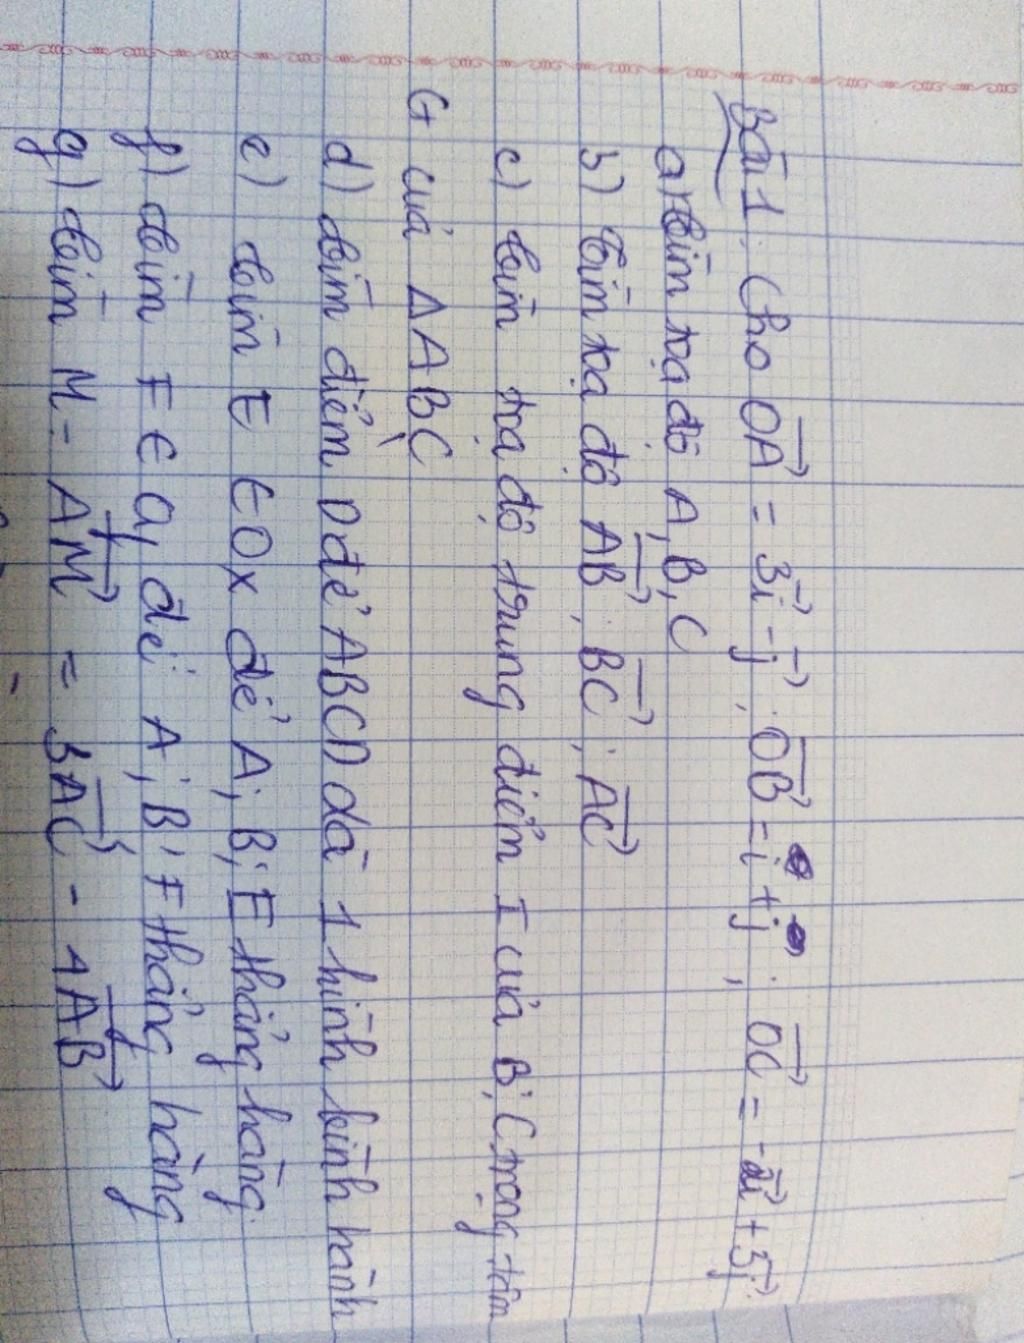 Bài 1: Cho OA = 3i - j; OB = i + j; OC = -2i + 5j
a) tìm tọa độ A, B, C
b) tìm tọa độ AB; BC; AC
c) tìm tọa độ trung điểm I của B; C trọng tâm
G của ΔABC
d) tìm điểm D để ABCD là 1 hình bình hành
e) tìm E ∈ Ox để A; B; E thẳng hàng
f) tìm F ∈ để A; B; F thẳng hàng
g) tìm M: AM = 3AC - 4AB